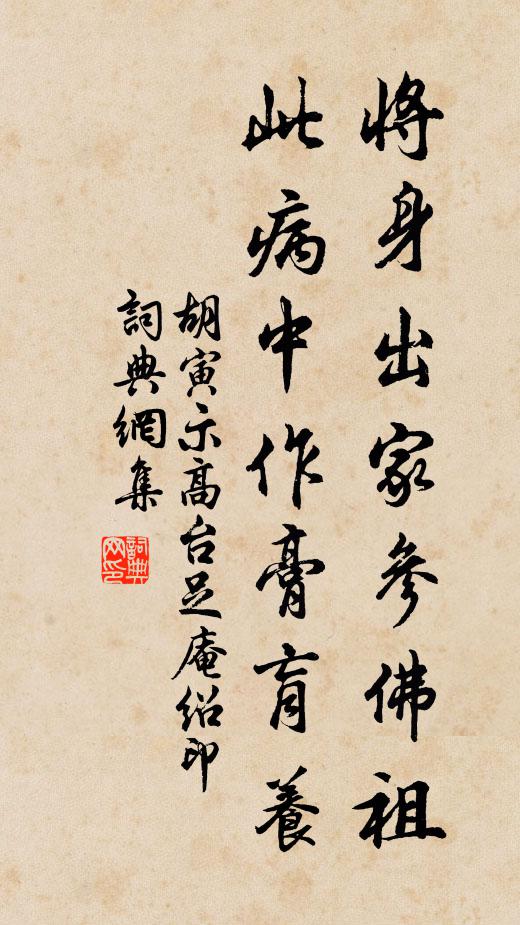 將身出家參佛祖
此病中作膏肓養
胡寅示高台足庵紹印
詞典網集
詞典網印